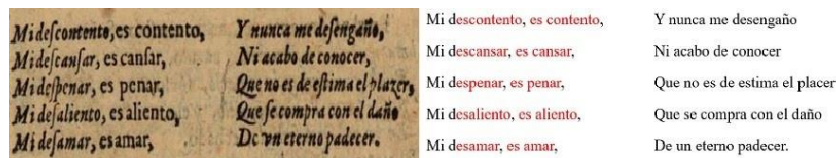 Mi descontento, es contento,
Mi descansar, es cansar,
Mi despenar, es penar,
Mi desaliento, es aliento,
Mi desamar, es amar,
Y nunca me desengaño,
Ni acabo de conocer,
Que no es de estima el plazer,
Que se compra con el daño
De vn eterno padecer.
Mi descontento, es contento,
Mi descansar, es cansar,
Mi despenar, es penar,
Mi desaliento, es aliento,
Mi desamar, es amar,
Y nunca me desengaño
Ni acabo de conocer
Que no es de estima el placer
Que se compra con el daño
De un eterno padecer.